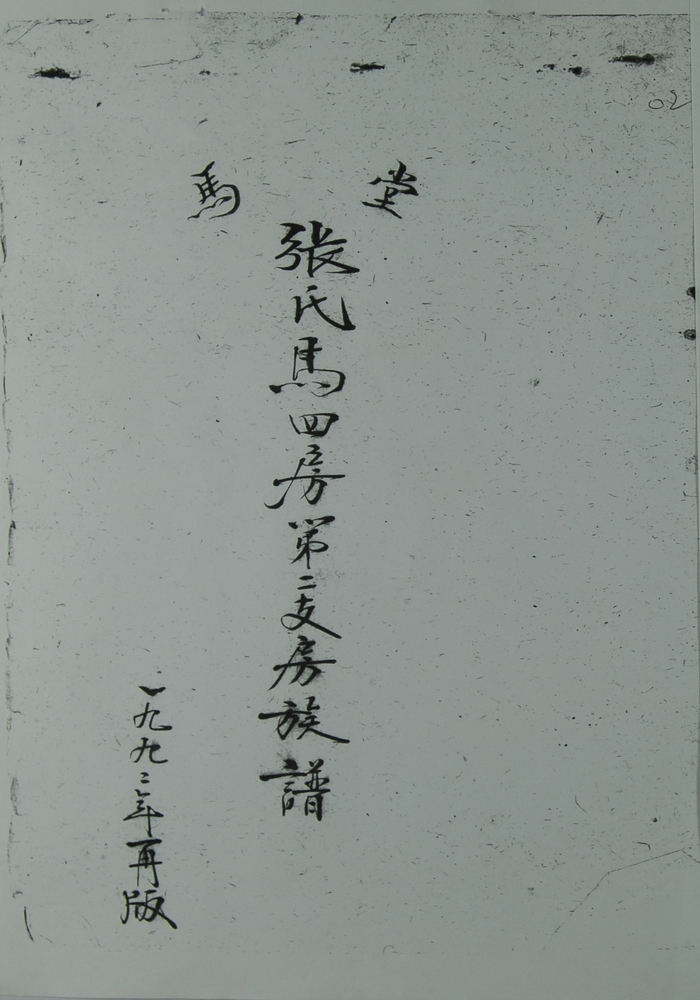 02
堂 馬
張氏馬四房第二支房族譜
一九九二年再版